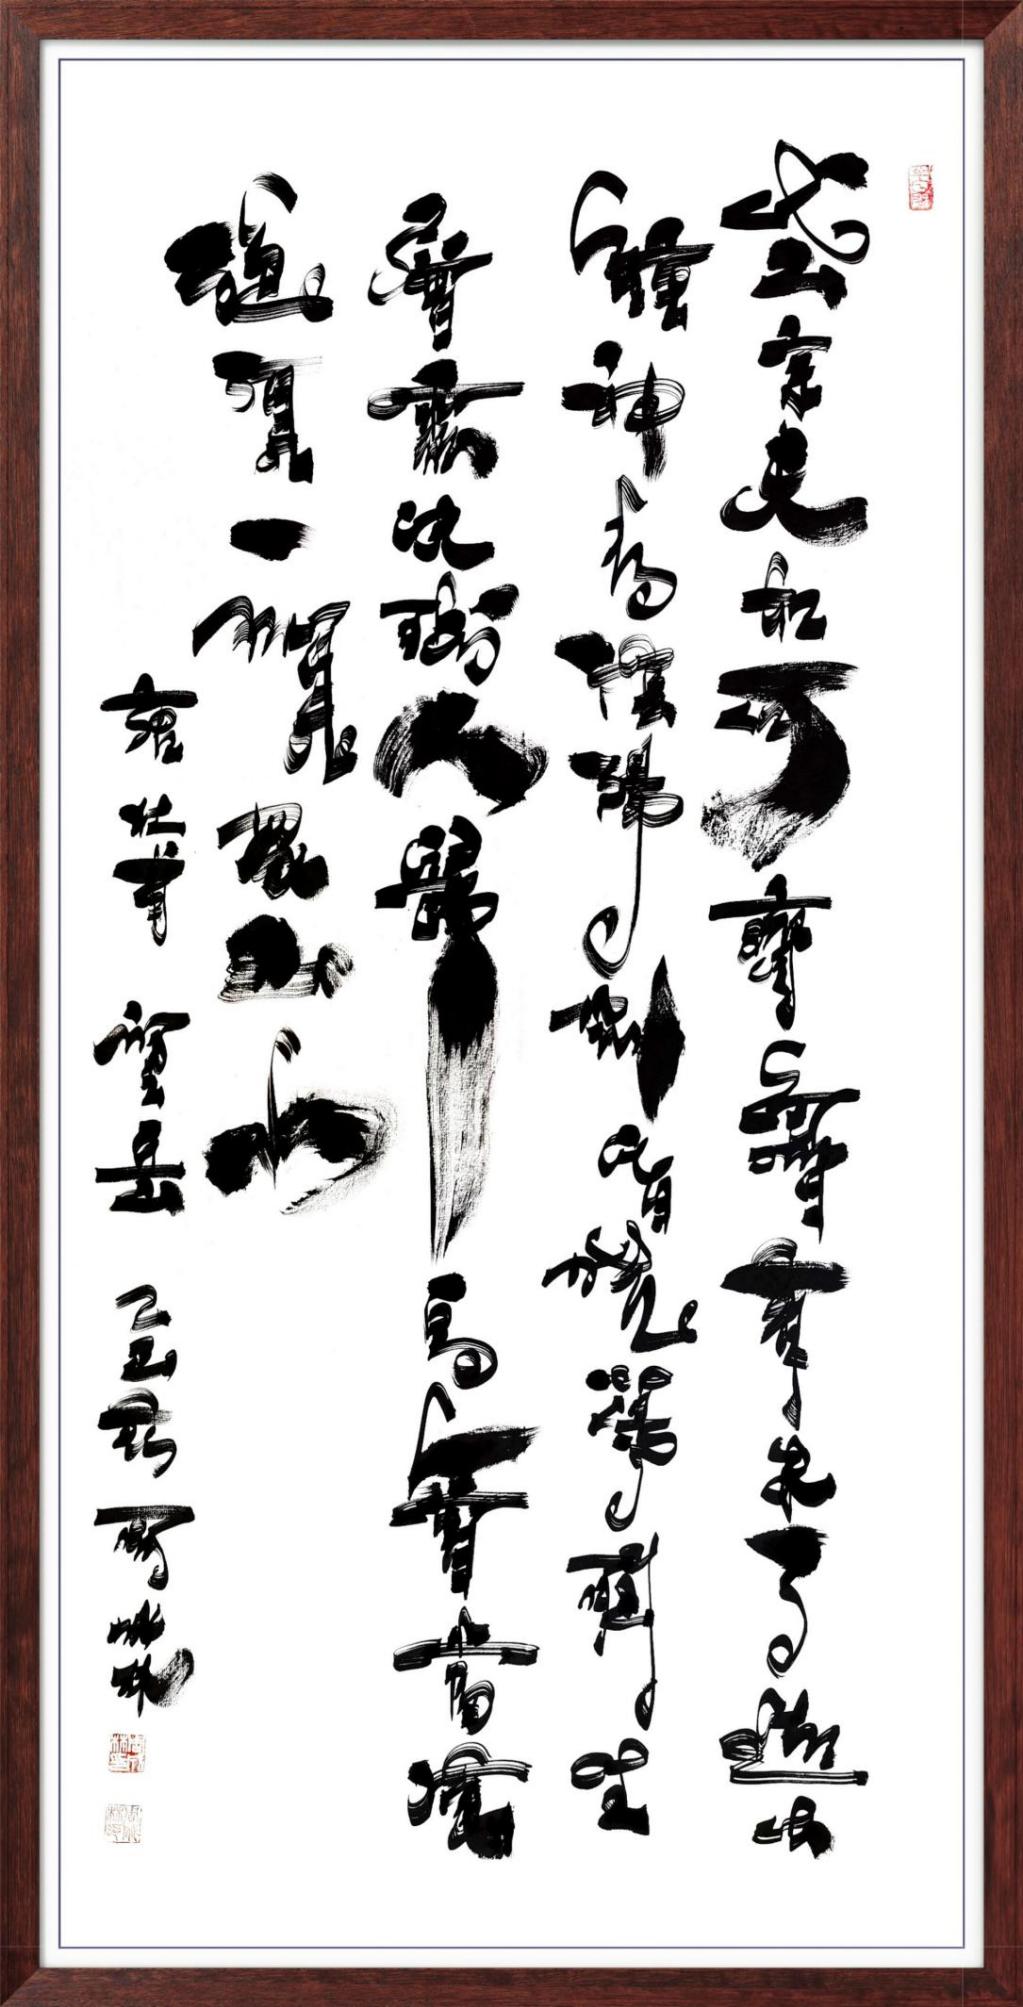 岱宗夫如何齊魯青未了造化
鍾神秀陰陽割昏曉蕩胸生
層雲決眥入歸鳥會當凌
絕頂一覽眾山小
杜甫 望岳 乙巳